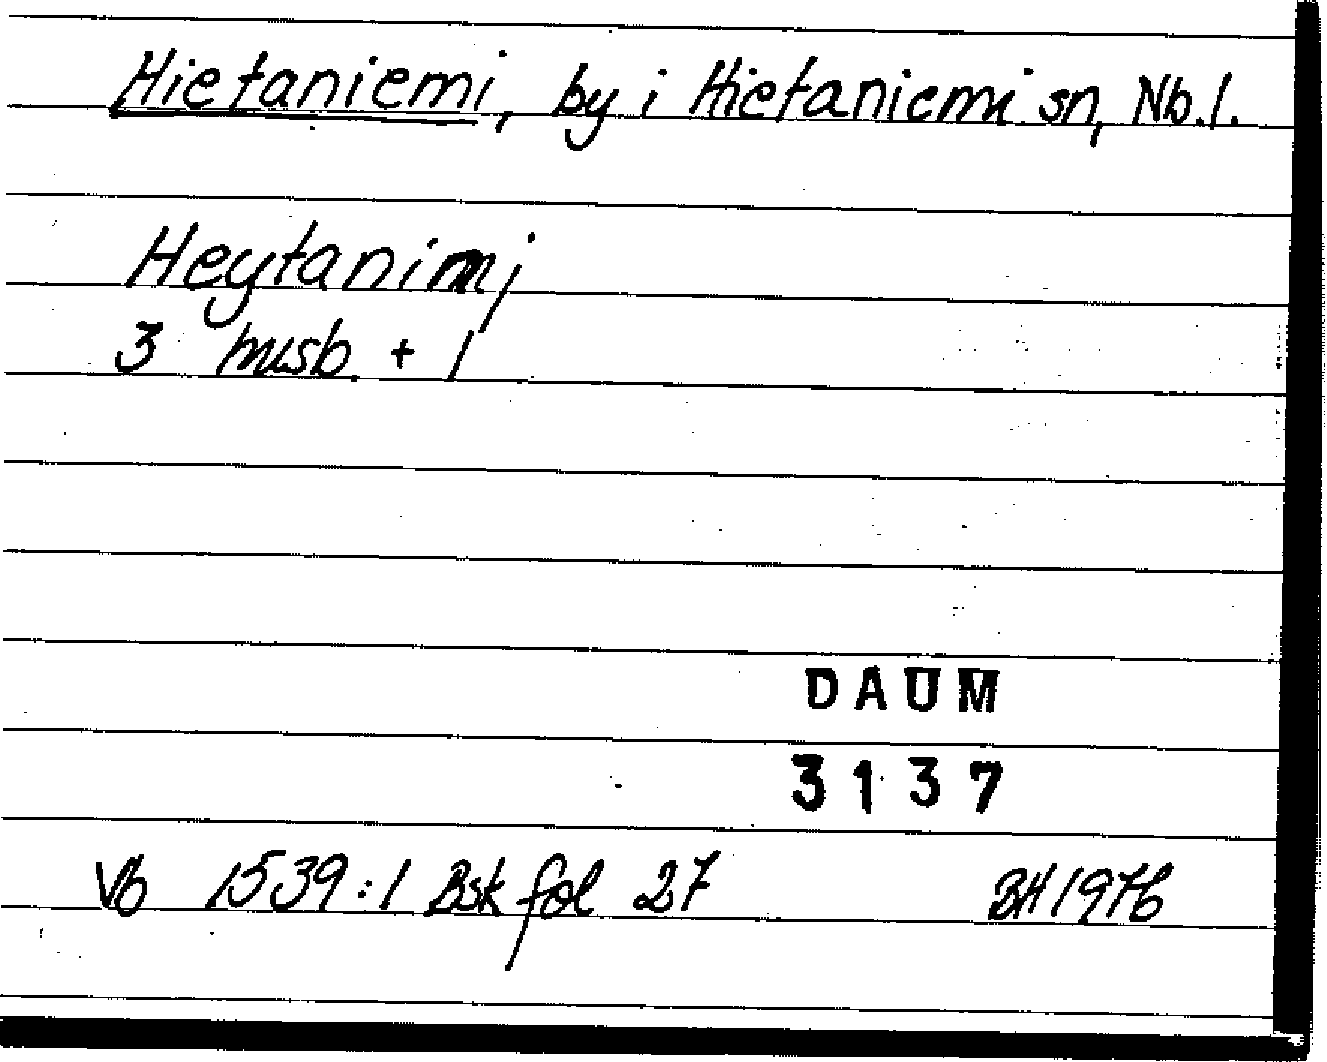 Hietaniemi, by i Hietaniemi sn, Nb.l.
Heytanimj
3 musb. + 1
DAUM
3137
Vb 1539:1 Bsk fol 27 BH 1976